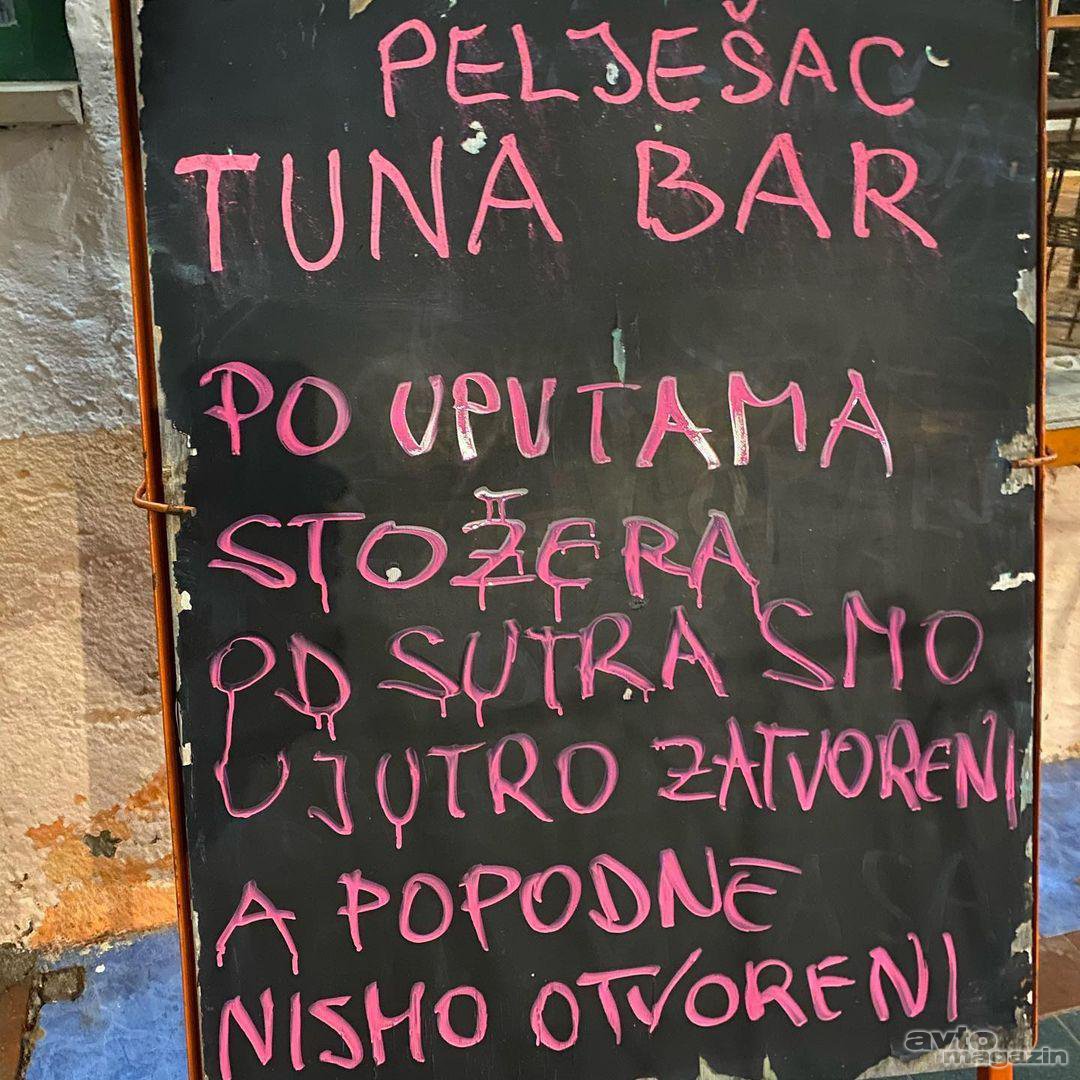 PELJEŠAC
TUNA BAR
PO UPUTAMA
STOŽERA
OD SUTRA SMO
UJUTRO ZATVORENI
A POPODNE
NISMO OTVORENI
avto
magazin